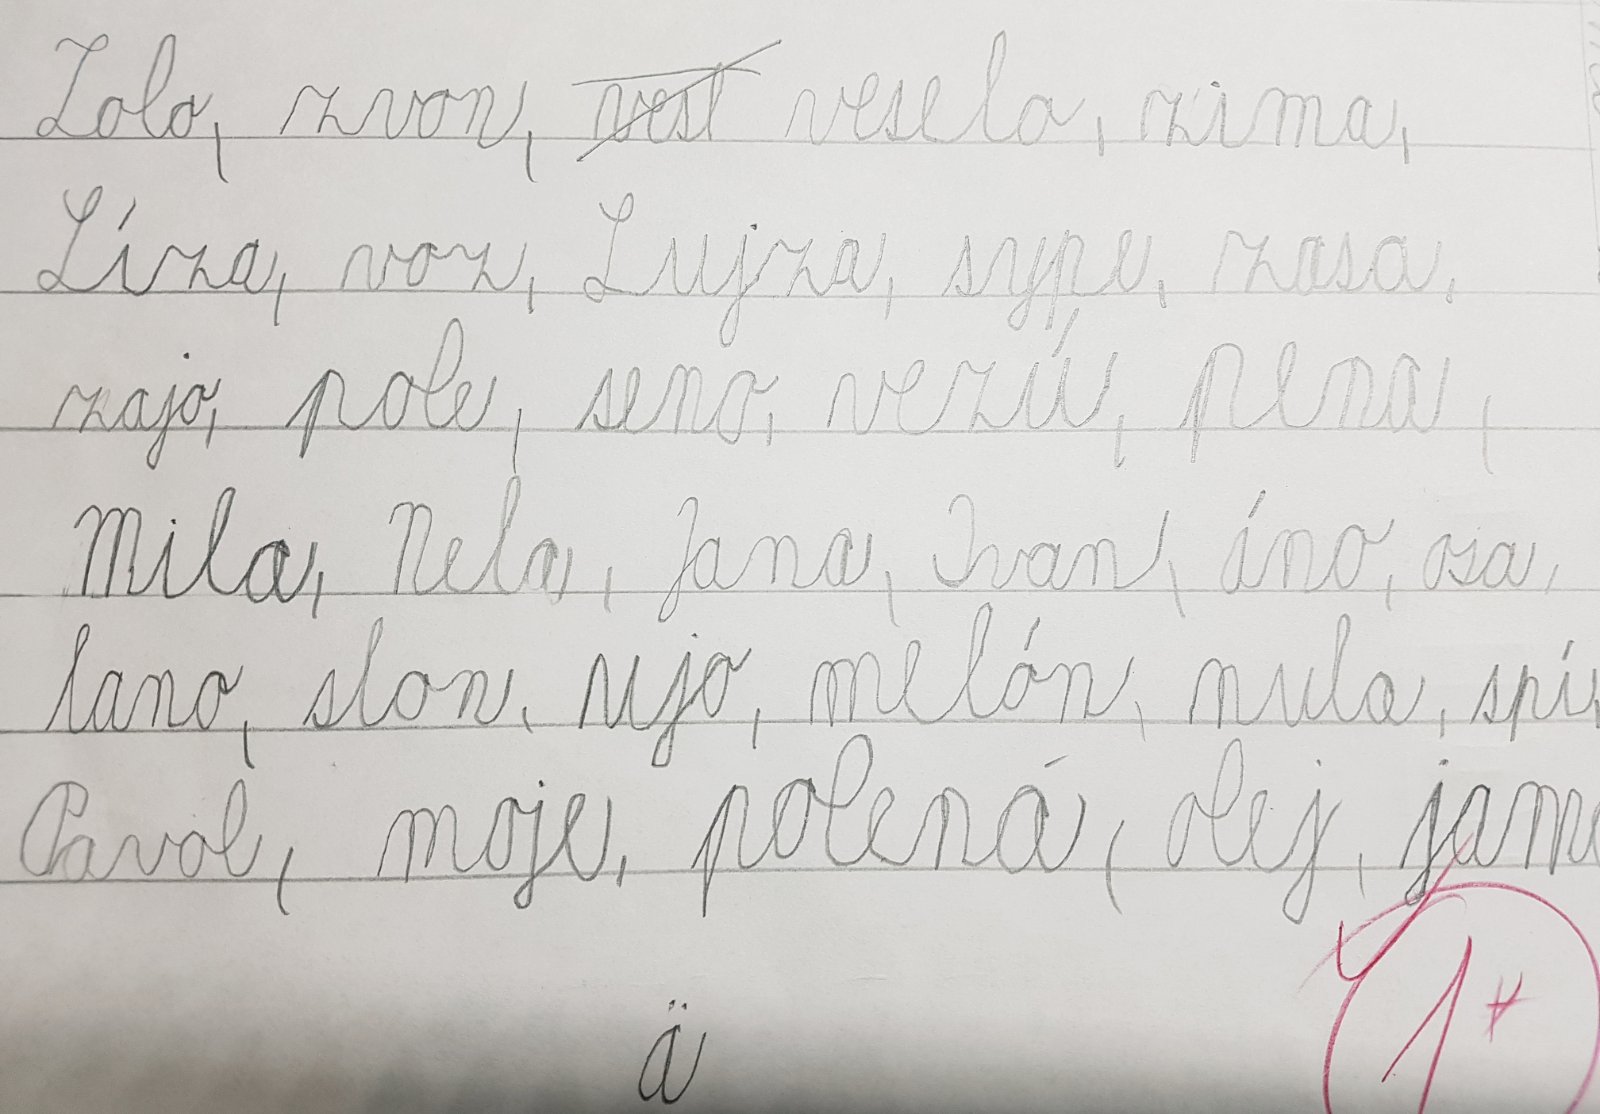 Lolo, zvon, vest vesela, zima,
Líza, voz, Lujza, sype, zasa,
zaja, pole, seno, vezú, pena,
Mila, Nela, Jana, Ivan, áno, osa,
lano, slon, ujo, melón, nula, spí,
Pavol, moje, polená, olej, jame
ä
1*